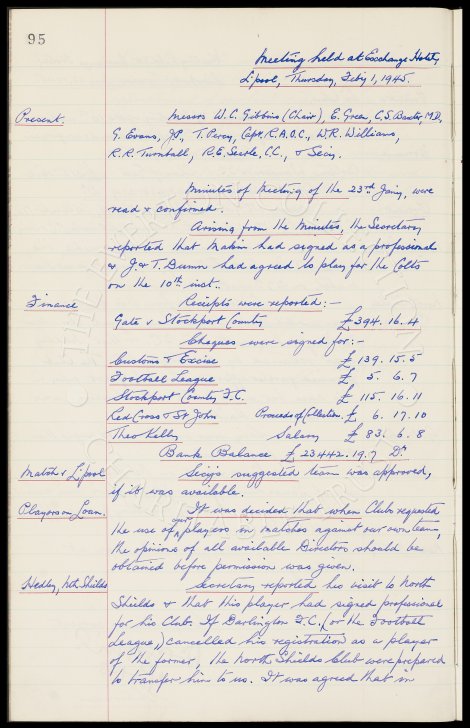 95
Meeting held at Exchange Hotel,
L'pool, Thursday, Feby 1, 1945.
Present.
Messrs W.C. Gibbins (Chair), E. Green, C.S. Baxter, M.D.,
G. Evans, J.P., T. Percy, Capt. R.A.O.C., W.R. Williams,
R.R. Turnbull, R.E. Searle, C.C., & Secy.
Minutes of Meeting of the 23rd Jany, were
read & confirmed.
Arising from the Minutes, the Secretary
reported that Makin had signed as a professional
& J. & T. Dunn had agreed to play for the Colts
on the 10th inst.
Finance
Receipts were reported:—
Gate v Stockport County £394. 16. 4
Cheques were signed for:—
Customs & Excise £139. 15. 5
Football League £ 5. 6. 7
Stockport County F.C. £ 115. 16. 11
Red Cross & St John Proceeds of Collection. £ 6. 17. 10
Theo Kelly Salary £ 83. 6. 8
Bank Balance £23442. 19. 7 Dr
Match v L'pool
Secy's suggested team was approved,
if it was available.
Players on Loan.
It was decided that when Clubs requested
the use of our players in matches against our own team,
the opinions of all available Directors should be
obtained before permission was given.
Hedley, Nth Shields
Secretary reported his visit to North
Shields & that this player had signed professional
for his Club. If Darlington F.C., (or the Football
League,) cancelled his registration as a player
of the former, the North Shields Club were prepared
to transfer him to us. It was agreed that in